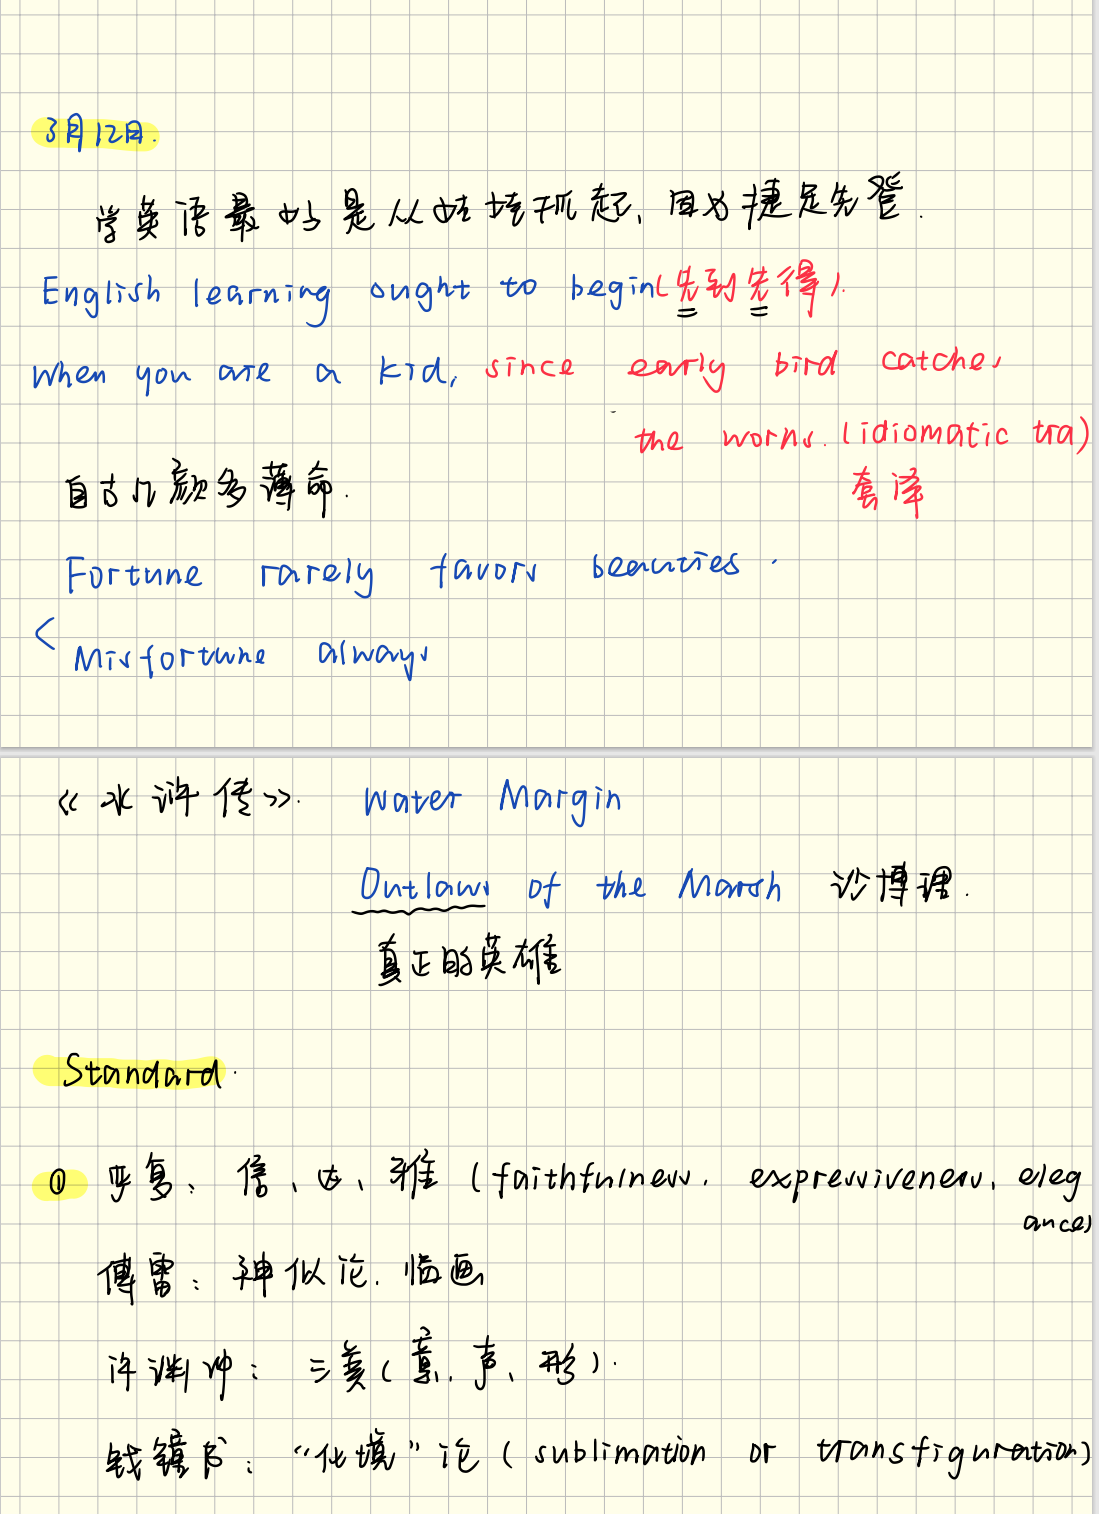 3月12日.
学英语最好是从娃娃抓起,因为捷足先登.
English learning ought to begin(先到先得).
when you are a kid, since early bird catches
the worms. (idiomatic tra)
自古红颜多薄命.
套译
Fortune rarely favors beauties.
< Misfortune always
《水浒传》. Water Margin
Outlaws of the Marsh 沙博理.
真正的英雄
Standard.
① 严复: 信、达、雅 (faithfulness. expressiveness, eleg
ance)
傅雷: 神似论. 临画
许渊冲: 三美(意、声、形).
钱锺书: “化境”论 (sublimation or transfiguration)